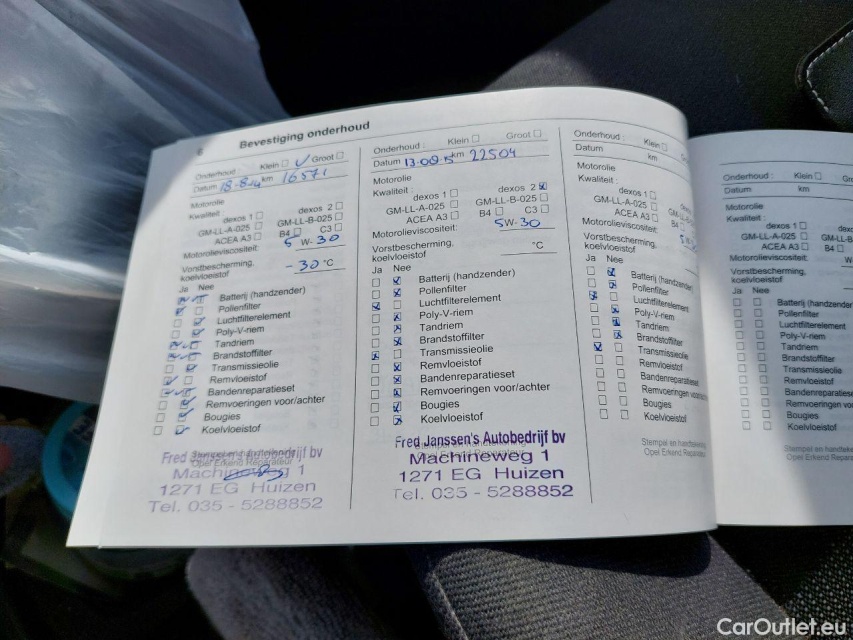 6 Bevestiging onderhoud
Onderhoud : Klein Groot
Datum 18-8-14 km 16571
Motorolie
Kwaliteit : dexos 1 dexos 2
GM-LL-A-025 GM-LL-B-025
ACEA A3 B4 C3
Motorolieviscositeit: 5 W-30
Vorstbescherming,
koelvloeistof -30 °C
Ja Nee
Batterij (handzender)
Pollenfilter
Luchtfilterelement
Poly-V-riem
Tandriem
Brandstoffilter
Transmissieolie
Remvloeistof
Bandenreparatieset
Remvoeringen voor/achter
Bougies
Koelvloeistof
Fred Janssen's Autobedrijf bv
Opel Erkend Reparateur
1271 EG Huizen
Tel. 035 - 5288852
Onderhoud : Klein Groot
Datum km 22504
Motorolie
Kwaliteit : dexos 1 dexos 2
GM-LL-A-025 GM-LL-B-025
ACEA A3 B4 C3
Motorolieviscositeit: 5W-30
Vorstbescherming,
koelvloeistof °C
Ja Nee
Batterij (handzender)
Pollenfilter
Luchtfilterelement
Poly-V-riem
Tandriem
Brandstoffilter
Transmissieolie
Remvloeistof
Bandenreparatieset
Remvoeringen voor/achter
Bougies
Koelvloeistof
Fred Janssen's Autobedrijf bv
Machineweg 1
1271 EG Huizen
Tel. 035 - 5288852
Onderhoud : Klein
Datum km
Motorolie
Kwaliteit : dexos 1
GM-LL-A-025
ACEA A3
Motorolieviscositeit:
Vorstbescherming,
koelvloeistof
Ja Nee
Batterij (handzender)
Pollenfilter
Luchtfilterelement
Poly-V-riem
Tandriem
Brandstoffilter
Transmissieolie
Remvloeistof
Bandenreparatieset
Remvoeringen voor/achter
Bougies
Koelvloeistof
Stempel en
Opel Erkend Reparateur
Onderhoud : Klein
Datum km
Motorolie
Kwaliteit : dexos 1
GM-LL-A-025
ACEA A3 B4
Motorolieviscositeit: W
Vorstbescherming,
koelvloeistof
Ja Nee
Batterij (handzender)
Pollenfilter
Luchtfilterelement
Poly-V-riem
Tandriem
Brandstoffilter
Transmissieolie
Remvloeistof
Bandenreparatieset
Remvoeringen voor/achter
Bougies
Koelvloeistof
Stempel en
Opel Erkend
CarOutlet.eu